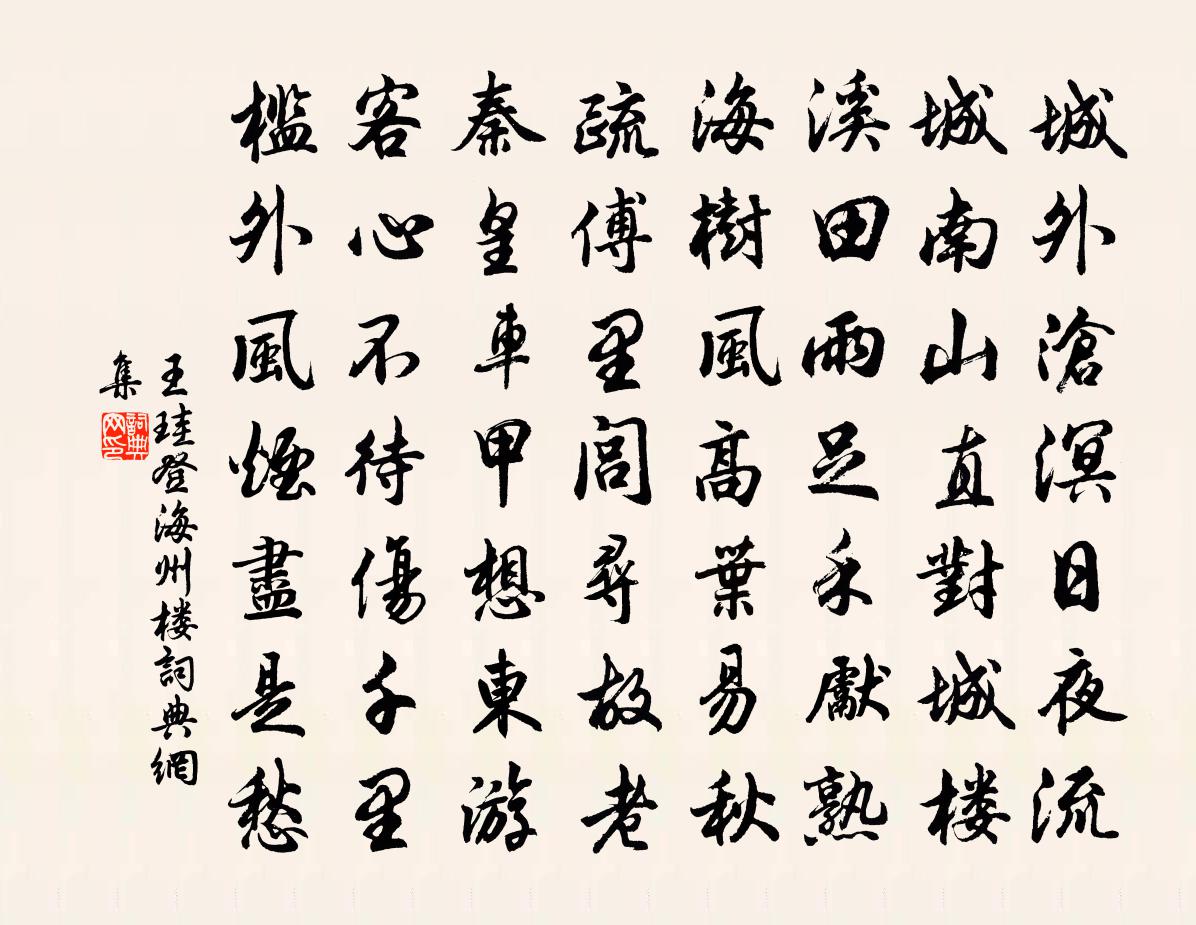 城外滄溟日夜流
城南山直對城楼
溪田雨足禾獻熟
海樹風高葉易秋
疏傅里閭尋故老
秦皇車甲想東游
客心不待傷千里
檻外風煙盡是愁
王珪登海州楼詞典網
集
詞典
网印